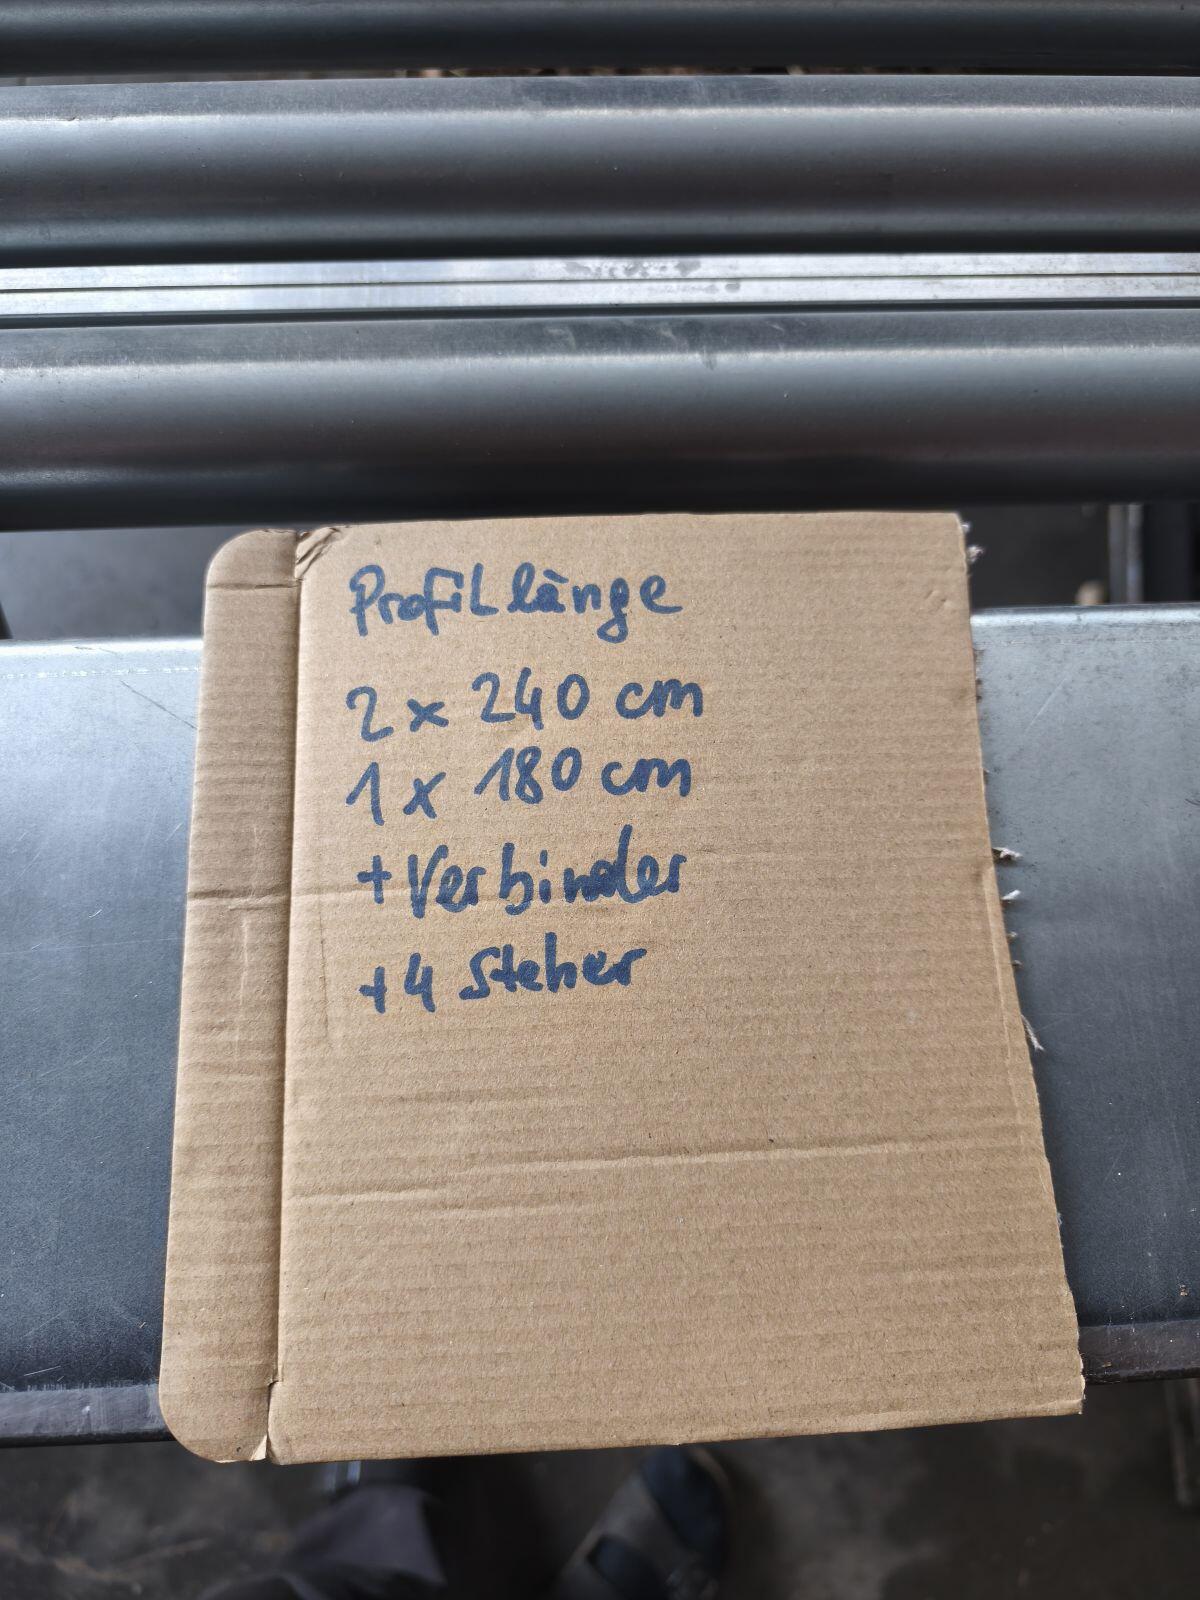 Profillänge
2 x 240 cm
1 x 180 cm
+ Verbinder
+ 4 Steher